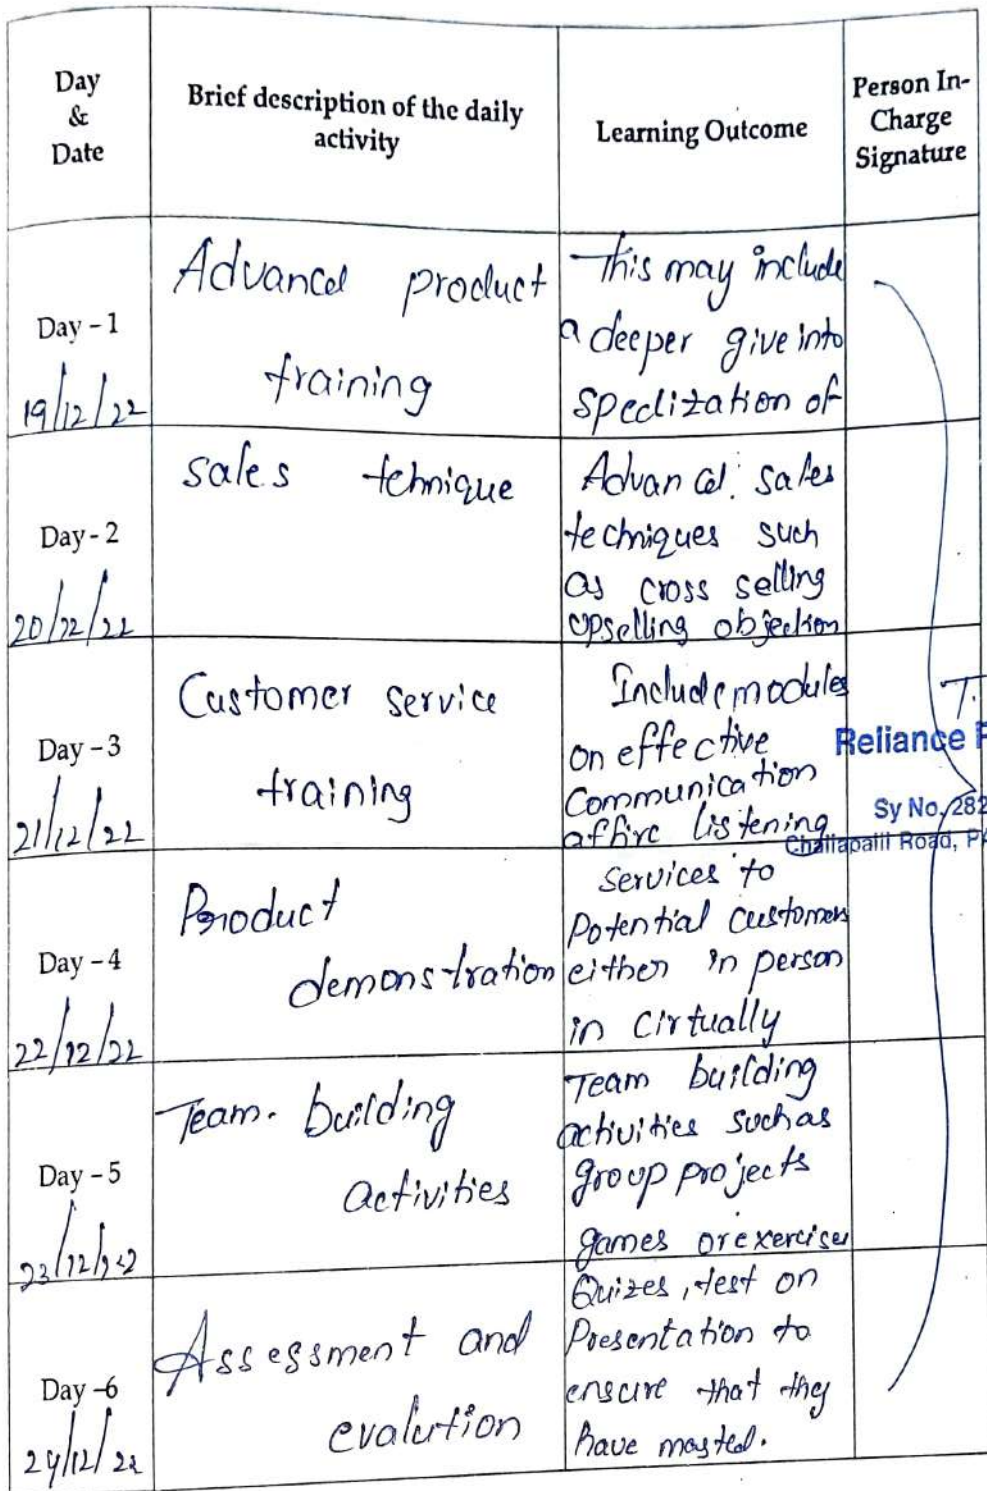 Day
&
Date
Brief description of the daily
activity
Learning Outcome
Person In-
Charge
Signature
Day - 1
19/12/22
Advancel product
training
This may include
a deeper give into
speclization of
Day - 2
20/12/22
sales tehnique
Advancel. sales
techniques such
as cross selling
upselling objection
Day - 3
21/12/22
Customer service
training
Include modules
on effective
Communication
listening
T.
Reliance
Sy No. 282
Challapalli Road,
Day - 4
22/12/22
Product
demonstration
services to
Potential customers
either in person
in cirtually
Day - 5
23/12/22
Team. building
activities
Team building
activities such as
group projects
games or exercises
Day - 6
24/12/22
Assessment and
evalution
Quizes, test on
Presentation to
ensure that they
have masted.